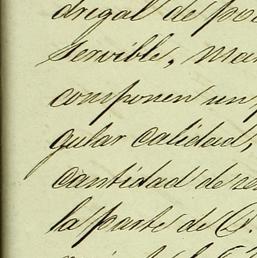 drigal de po
servible, man
componen un
gular calidad,
cantidad de re
la parte de D.